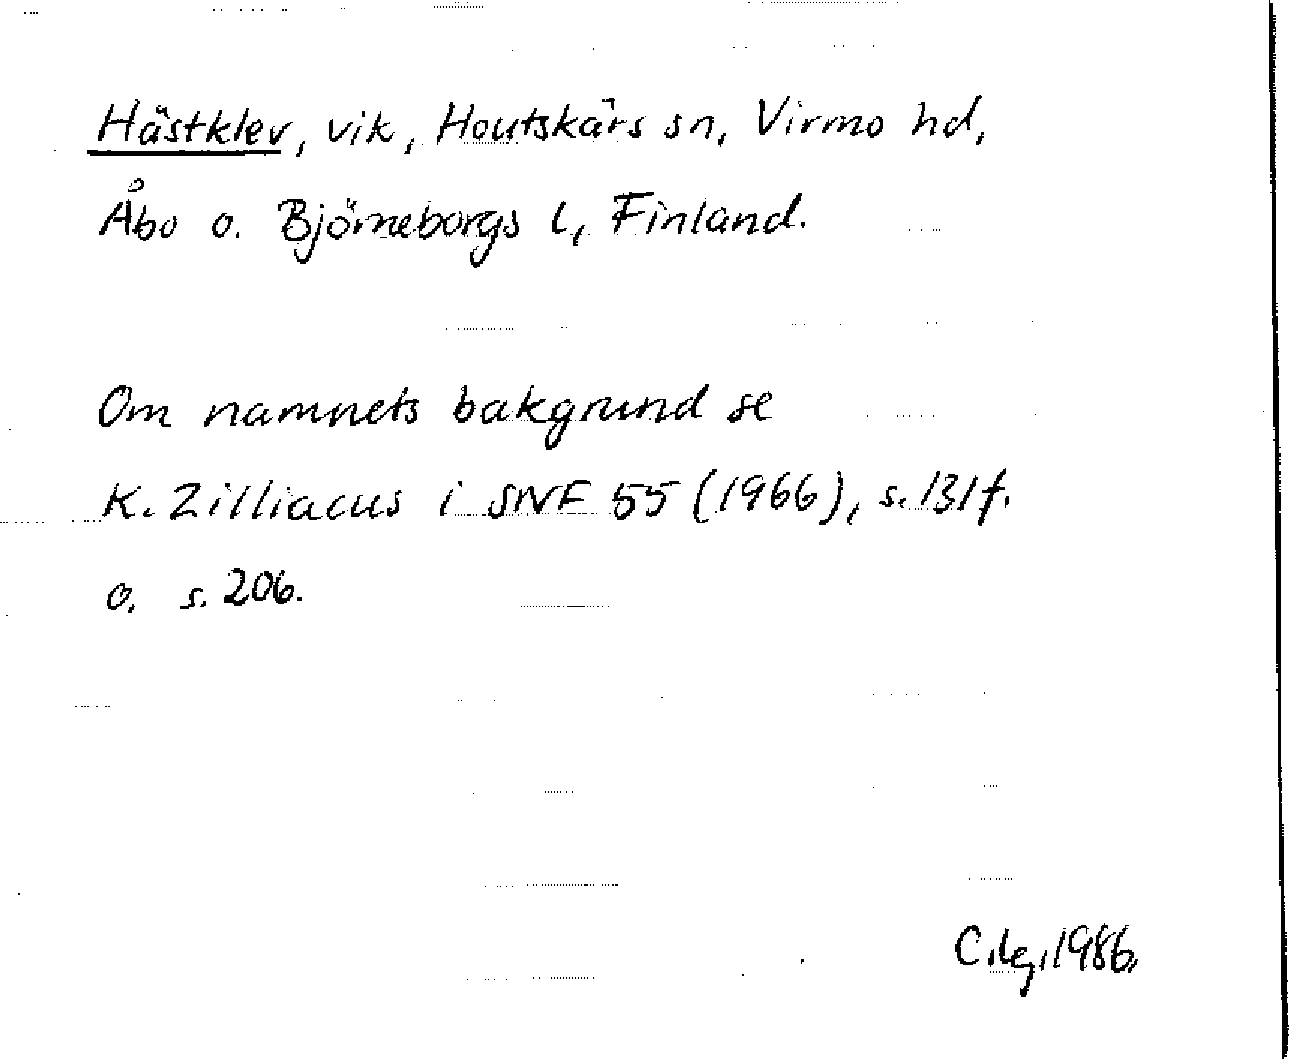 Hästklev, vik, Houtskärs sn, Virmo hd,
Åbo o. Björneborgs l, Finland.
Om namnets bakgrund se
K. Zilliacus i SNF 55 (1966), s. 131f.
o. s. 206.
1986.